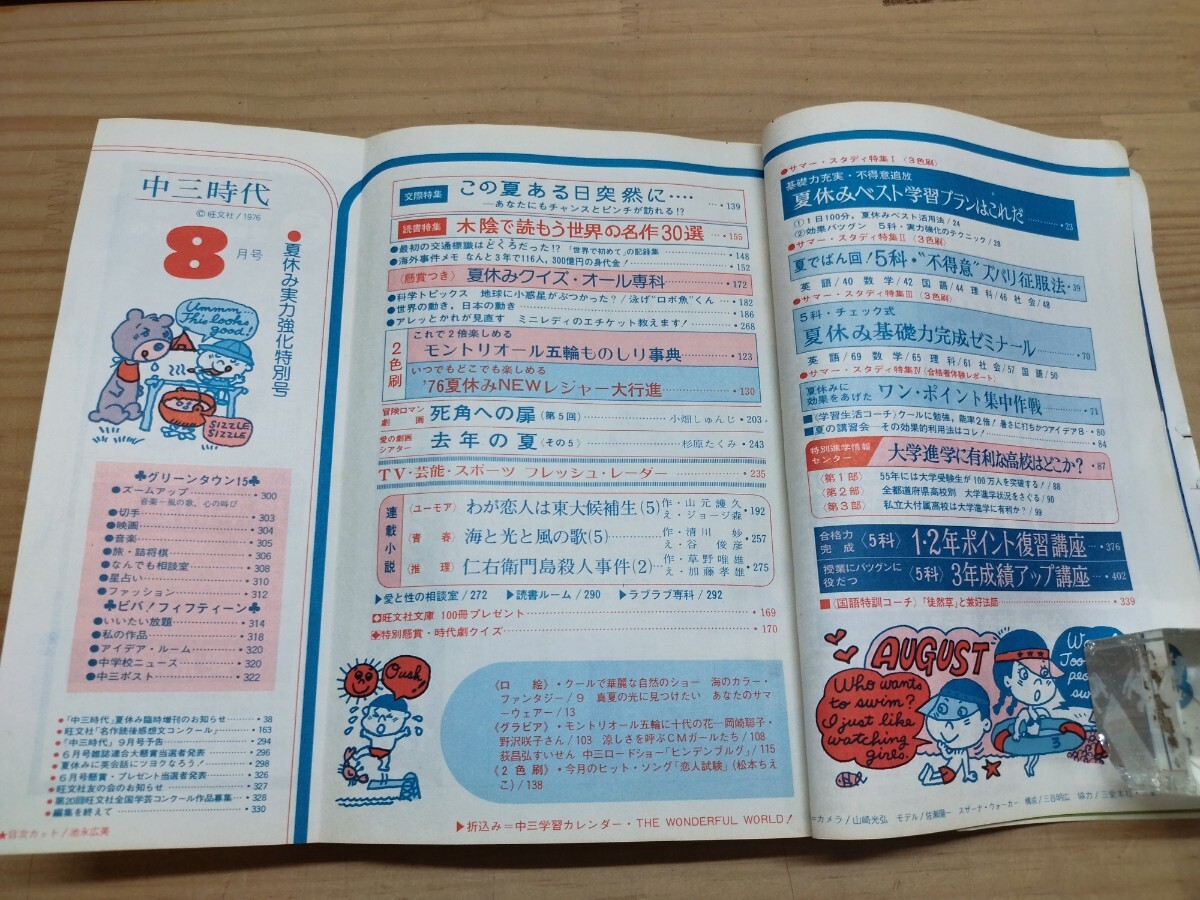 中三時代
©旺文社/1976
8月号
●夏休み実力強化特別号
Ummm...
This looks
good!
SIZZLE
SIZZLE
♣グリーンタウン15♣
●ズームアップ・300
音楽ー風の歌，心の叫び
●切手・303
●映画・304
●音楽・305
●旅・詰将棋・306
●なんでも相談室・308
●星占い・310
●ファッション・312
♣ビバ！フィフティーン♣
●いいたい放題・314
●私の作品・318
●アイデア・ルーム・320
●中学校ニュース・320
●中三ポスト・322
●「中三時代」夏休み臨時増刊のお知らせ・38
●旺文社「名作読後感想文コンクール」・163
●「中三時代」9月号予告・294
●6月号雑誌連合大懸賞当選者発表・296
●夏休みに英会話にツヨクなろう！・298
●6月号懸賞・プレゼント当選者発表・326
●旺文社友の会のお知らせ・327
●第20回旺文社全国学芸コンクール作品募集・328
●編集を終えて・330
★目次カット/池永広美
文際特集 この夏ある日突然に‥‥
—あなたにもチャンスとピンチが訪れる!?・139
読書特集 木陰で読もう世界の名作30選・155
●最初の交通標識はどくろだった!? 「世界で初めて」の記録集・148
●海外事件メモ なんと3年で116人，300億円の身代金！・152
〈懸賞つき〉 夏休みクイズ・オール専科・172
●科学トピックス 地球に小惑星がぶつかった？/泳げ“ロボ魚”くん・182
●世界の動き，日本の動き・186
●アレッとかれが見直す ミニレディのエチケット教えます！・268
2色刷
これで2倍楽しめる
モントリオール五輪ものしり事典・123
いつでもどこでも楽しめる
'76夏休みNEWレジャー大行進・130
冒険ロマン劇画 死角への扉（第5回）小畑しゅんじ・203
愛の劇画シアター 去年の夏（その5）杉原たくみ・243
TV・芸能・スポーツ フレッシュ・レーダー・235
連載小説
〈ユーモア〉 わが恋人は東大候補生(5) 作・山元護久 え・ジョージ森・192
〈青春〉 海と光と風の歌(5) 作・清川妙 え・谷俊彦・257
〈推理〉 仁右衛門島殺人事件(2) 作・草野唯雄 え・加藤孝雄・275
▶愛と性の相談室/272 ▶読書ルーム/290 ▶ラブラブ専科/292
◆旺文社文庫 100冊プレゼント・169
◆特別懸賞・時代劇クイズ・170
Oush!
《口絵》・クールで華麗な自然のショー 海のカラー・
ファンタジー/9 真夏の光に見つけたい あなたのサマ
ーウェアー/13
《グラビア》・モントリオール五輪に十代の花—岡崎聡子・
野沢咲子さん/103 涼しさを呼ぶCMガールたち/108
荻昌弘すいせん 中三ロードショー「ヒンデンブルグ」/115
《2色刷》・今月のヒット・ソング「恋人試験」(松本ちえ
こ)/138
▶折込み＝中三学習カレンダー・THE WONDERFUL WORLD！
●サマー・スタディ特集Ⅰ〈3色刷〉
基礎力充実・不得意追放
夏休みベスト学習プランはこれだ・23
①1日100分，夏休みベスト活用法/24
②効果バツグン 5科・実力強化のテクニック/28
●サマー・スタディ特集Ⅱ〈3色刷〉
夏でばん回！5科・“不得意”ズバリ征服法・39
英語/40 数学/42 国語/44 理科/46 社会/48
●サマー・スタディ特集Ⅲ〈3色刷〉
5科・チェック式
夏休み基礎力完成ゼミナール・70
英語/69 数学/65 理科/61 社会/57 国語/50
●サマー・スタディ特集Ⅳ〈合格者体験レポート〉
夏休みに効果をあげた ワン・ポイント集中作戦・71
■〈学習生活コーチ〉クールに勉強，能率2倍！暑さに打ちかつアイデア8・80
■夏の講習会—その効果的利用法はコレ！・84
特別進学情報センター 大学進学に有利な高校はどこか？・87
〈第1部〉 55年には大学受験生が100万人を突破する！/88
〈第2部〉 全都道府県高校別 大学進学状況をさぐる/90
〈第3部〉 私立大付属高校は大学進学に有利か？/99
合格力完成〈5科〉1・2年ポイント復習講座・376
授業にバツグンに役だつ〈5科〉3年成績アップ講座・402
■〈国語特訓コーチ〉「徒然草」と兼好法師・339
AUGUST
Who wants
to swim?
I just like
watching
girls.
3
＝カメラ/山崎光弘 モデル/佐瀬陽一 スザーナ・ウォーカー 構成/三谷明広 協力/三愛本社